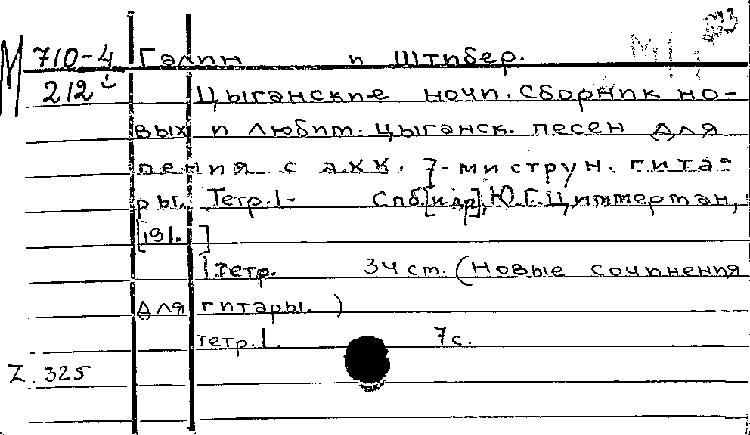 М 710-4 Галин и Штибер.
212 Цыганские ночи. Сборник но-
вых и любим. цыганск. песен для
пения с акк. 7-ми струн. гита-
ры. Тетр.1- Спб.[и др], Ю.Г.Циммерман,
[191. ]
1 тетр. 34 ст. (Новые сочинения
для гитары. )
тетр.1. 7с.
Z. 325